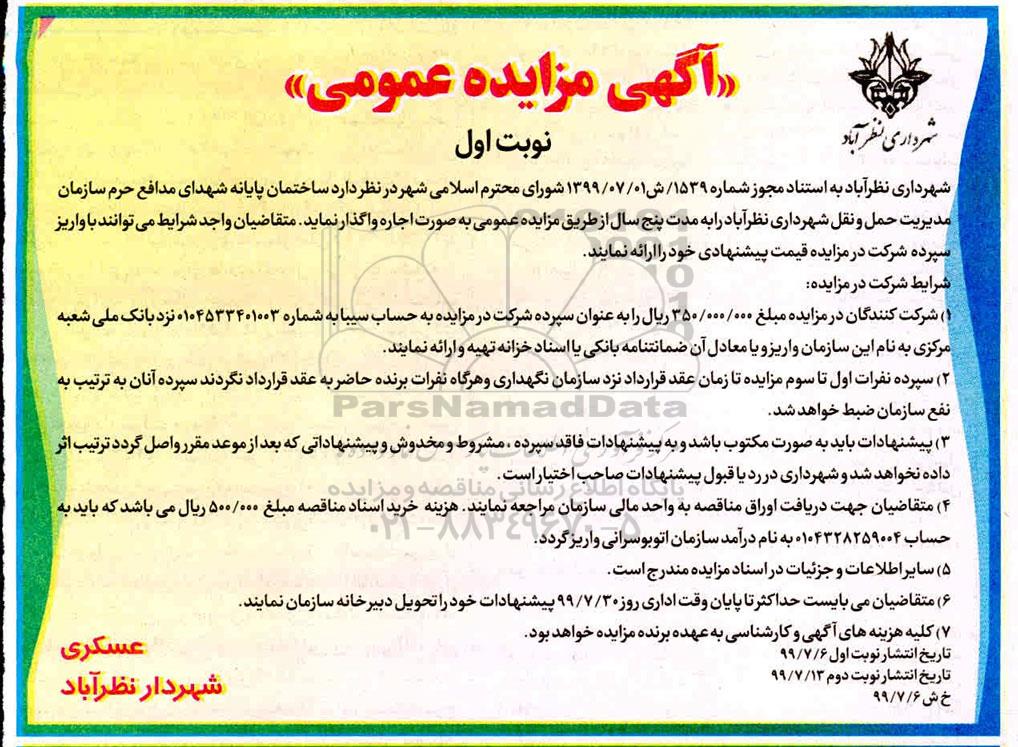 «آگهی مزایده عمومی»
شهرداری نظرآباد
نوبت اول
شهرداری نظرآباد به استناد مجوز شماره ۱۵۳۹/ش۱۳۹۹/۰۷/۰۱ شورای محترم اسلامی شهر در نظر دارد ساختمان پایانه شهدای مدافع حرم سازمان
مدیریت حمل و نقل شهرداری نظرآباد را به مدت پنج سال از طریق مزایده عمومی به صورت اجاره واگذار نماید. متقاضیان واجد شرایط می توانند با واریز
سپرده شرکت در مزایده قیمت پیشنهادی خود را ارائه نمایند.
شرایط شرکت در مزایده:
۱) شرکت کنندگان در مزایده مبلغ ۳۵۰/۰۰۰/۰۰۰ ریال را به عنوان سپرده شرکت در مزایده به حساب سیبا به شماره ۰۱۰۴۵۳۳۴۰۱۰۰۳ نزد بانک ملی شعبه
مرکزی به نام این سازمان واریز و یا معادل آن ضمانتنامه بانکی یا اسناد خزانه تهیه و ارائه نمایند.
۲) سپرده نفرات اول تا سوم مزایده تا زمان عقد قرارداد نزد سازمان نگهداری وهرگاه نفرات برنده حاضر به عقد قرارداد نگردند سپرده آنان به ترتیب به
نفع سازمان ضبط خواهد شد.
ParsNamadData
۳) پیشنهادات باید به صورت مکتوب باشد و به پیشنهادات فاقد سپرده ، مشروط و مخدوش و پیشنهاداتی که بعد از موعد مقرر واصل گردد ترتیب اثر
داده نخواهد شد و شهرداری در رد یا قبول پیشنهادات صاحب اختیار است.
پایگاه اطلاع رسانی مناقصه و مزایده
۴) متقاضیان جهت دریافت اوراق مناقصه به واحد مالی سازمان مراجعه نمایند. هزینه خرید اسناد مناقصه مبلغ ۵۰۰/۰۰۰ ریال می باشد که باید به
۰۲۱-۸۸۳۴۹۶۷۰-۵
حساب ۰۱۰۴۳۲۸۲۵۹۰۰۴ به نام درآمد سازمان اتوبوسرانی واریز گردد.
۵) سایر اطلاعات و جزئیات در اسناد مزایده مندرج است.
۶) متقاضیان می بایست حداکثر تا پایان وقت اداری روز ۹۹/۷/۳۰ پیشنهادات خود را تحویل دبیرخانه سازمان نمایند.
۷) کلیه هزینه های آگهی و کارشناسی به عهده برنده مزایده خواهد بود.
تاریخ انتشار نوبت اول ۹۹/۷/۶
تاریخ انتشار نوبت دوم ۹۹/۷/۱۳
خ ش ۹۹/۷/۶
عسکری
شهردار نظرآباد